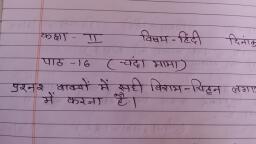 कक्षा - II विषय - हिंदी दिनांक
पाठ - 16 (चंदा मामा)
प्रश्न२ वाक्यों में सही विराम-चिहन लगा
में करना है।